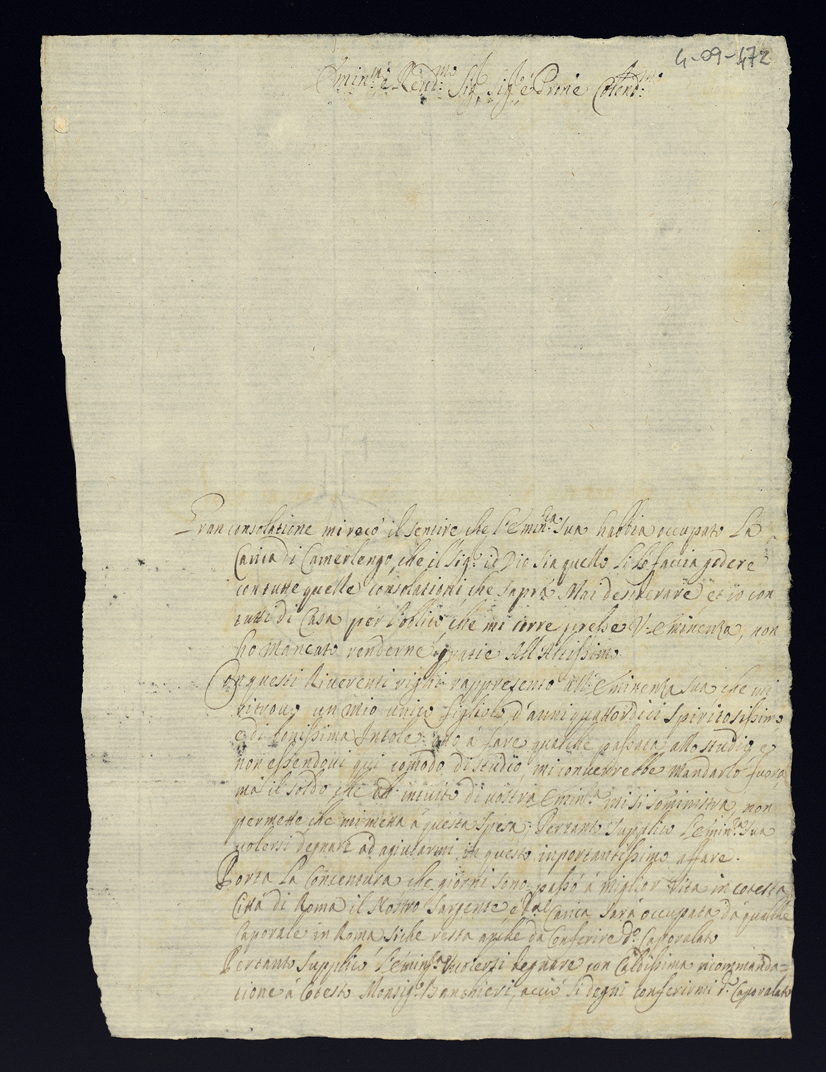 4-09-472
Emin:mo e Rend:mo Sig. Sig. e Prone Colend:mo
Gran consolatione mi recò il sentire che l'Emin:za Sua habbia occupato La
Carica di Camerlengo, che il Sig:r Id Dio sia quello Li lo faccia godere
con tutte quelle consolationi che saprà Mai desiderare et io con
tutti di Casa per l'obligo che mi corre presso V: Eminenza, non
ho Mancato renderne gratie All'Altissimo
Con questi Riverenti righi rappresento all'Eminenza sua che mi
ritrovo un mio unico figliolo d'anni quattordici spiritosissimo
e di bonissima Intole atto à fare qualche passata allo studio e
non essendovi qui comodo di studio, mi converrebbe mandarlo fuora
ma il soldo che ad' invito di vostra Emin:za mi si sominístra, non
permette che mi metta à questa spesa. Pertanto supplico L'emin:za Sua
volersi degnare ad agiutarmi in questo inportantissimo affare.
Porta La Concentura che giorni sono passò à miglior Vita in cotesta
Città di Roma il Nostro Sargente e tal Carica sarà occupata da qualche
Caporale in Roma si che resta anche da Conferire d:o Caporalato
Pertanto supplico L'emin:za Volersi degnare con Caldissima ricommanda-
tione à Cotesto Monsig:r Banchieri, acciò si degni conferirmi d:o Caporalato